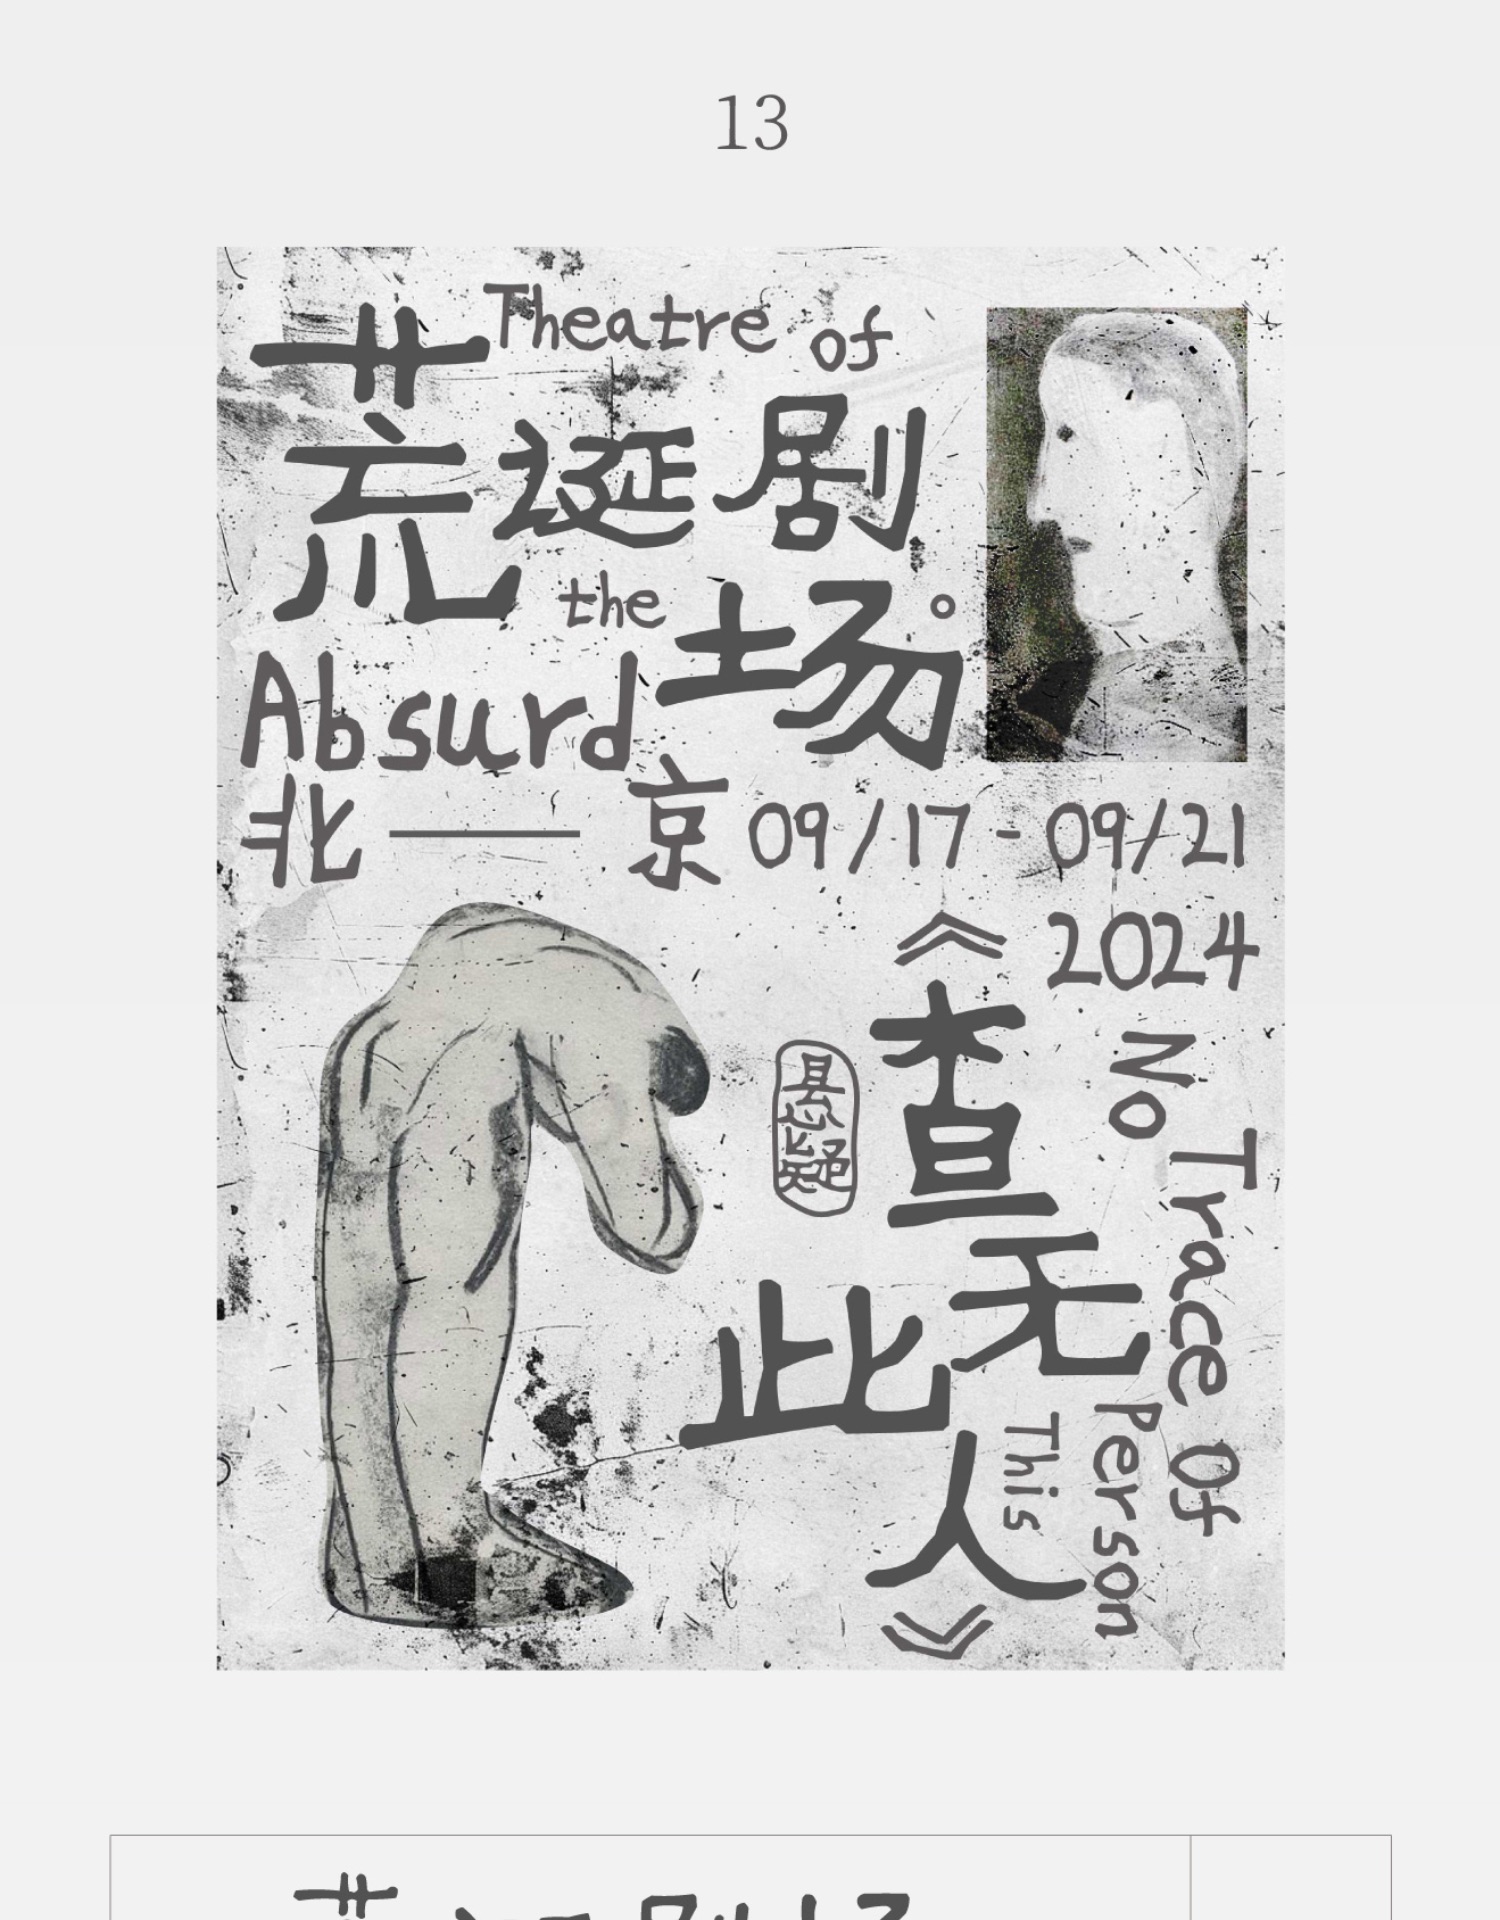 13
Theatre of
荒诞剧场。
the
Absurd
北——京 09/17-09/21
2024
《查无此人》
悬疑
No
Trace Of
Person
This